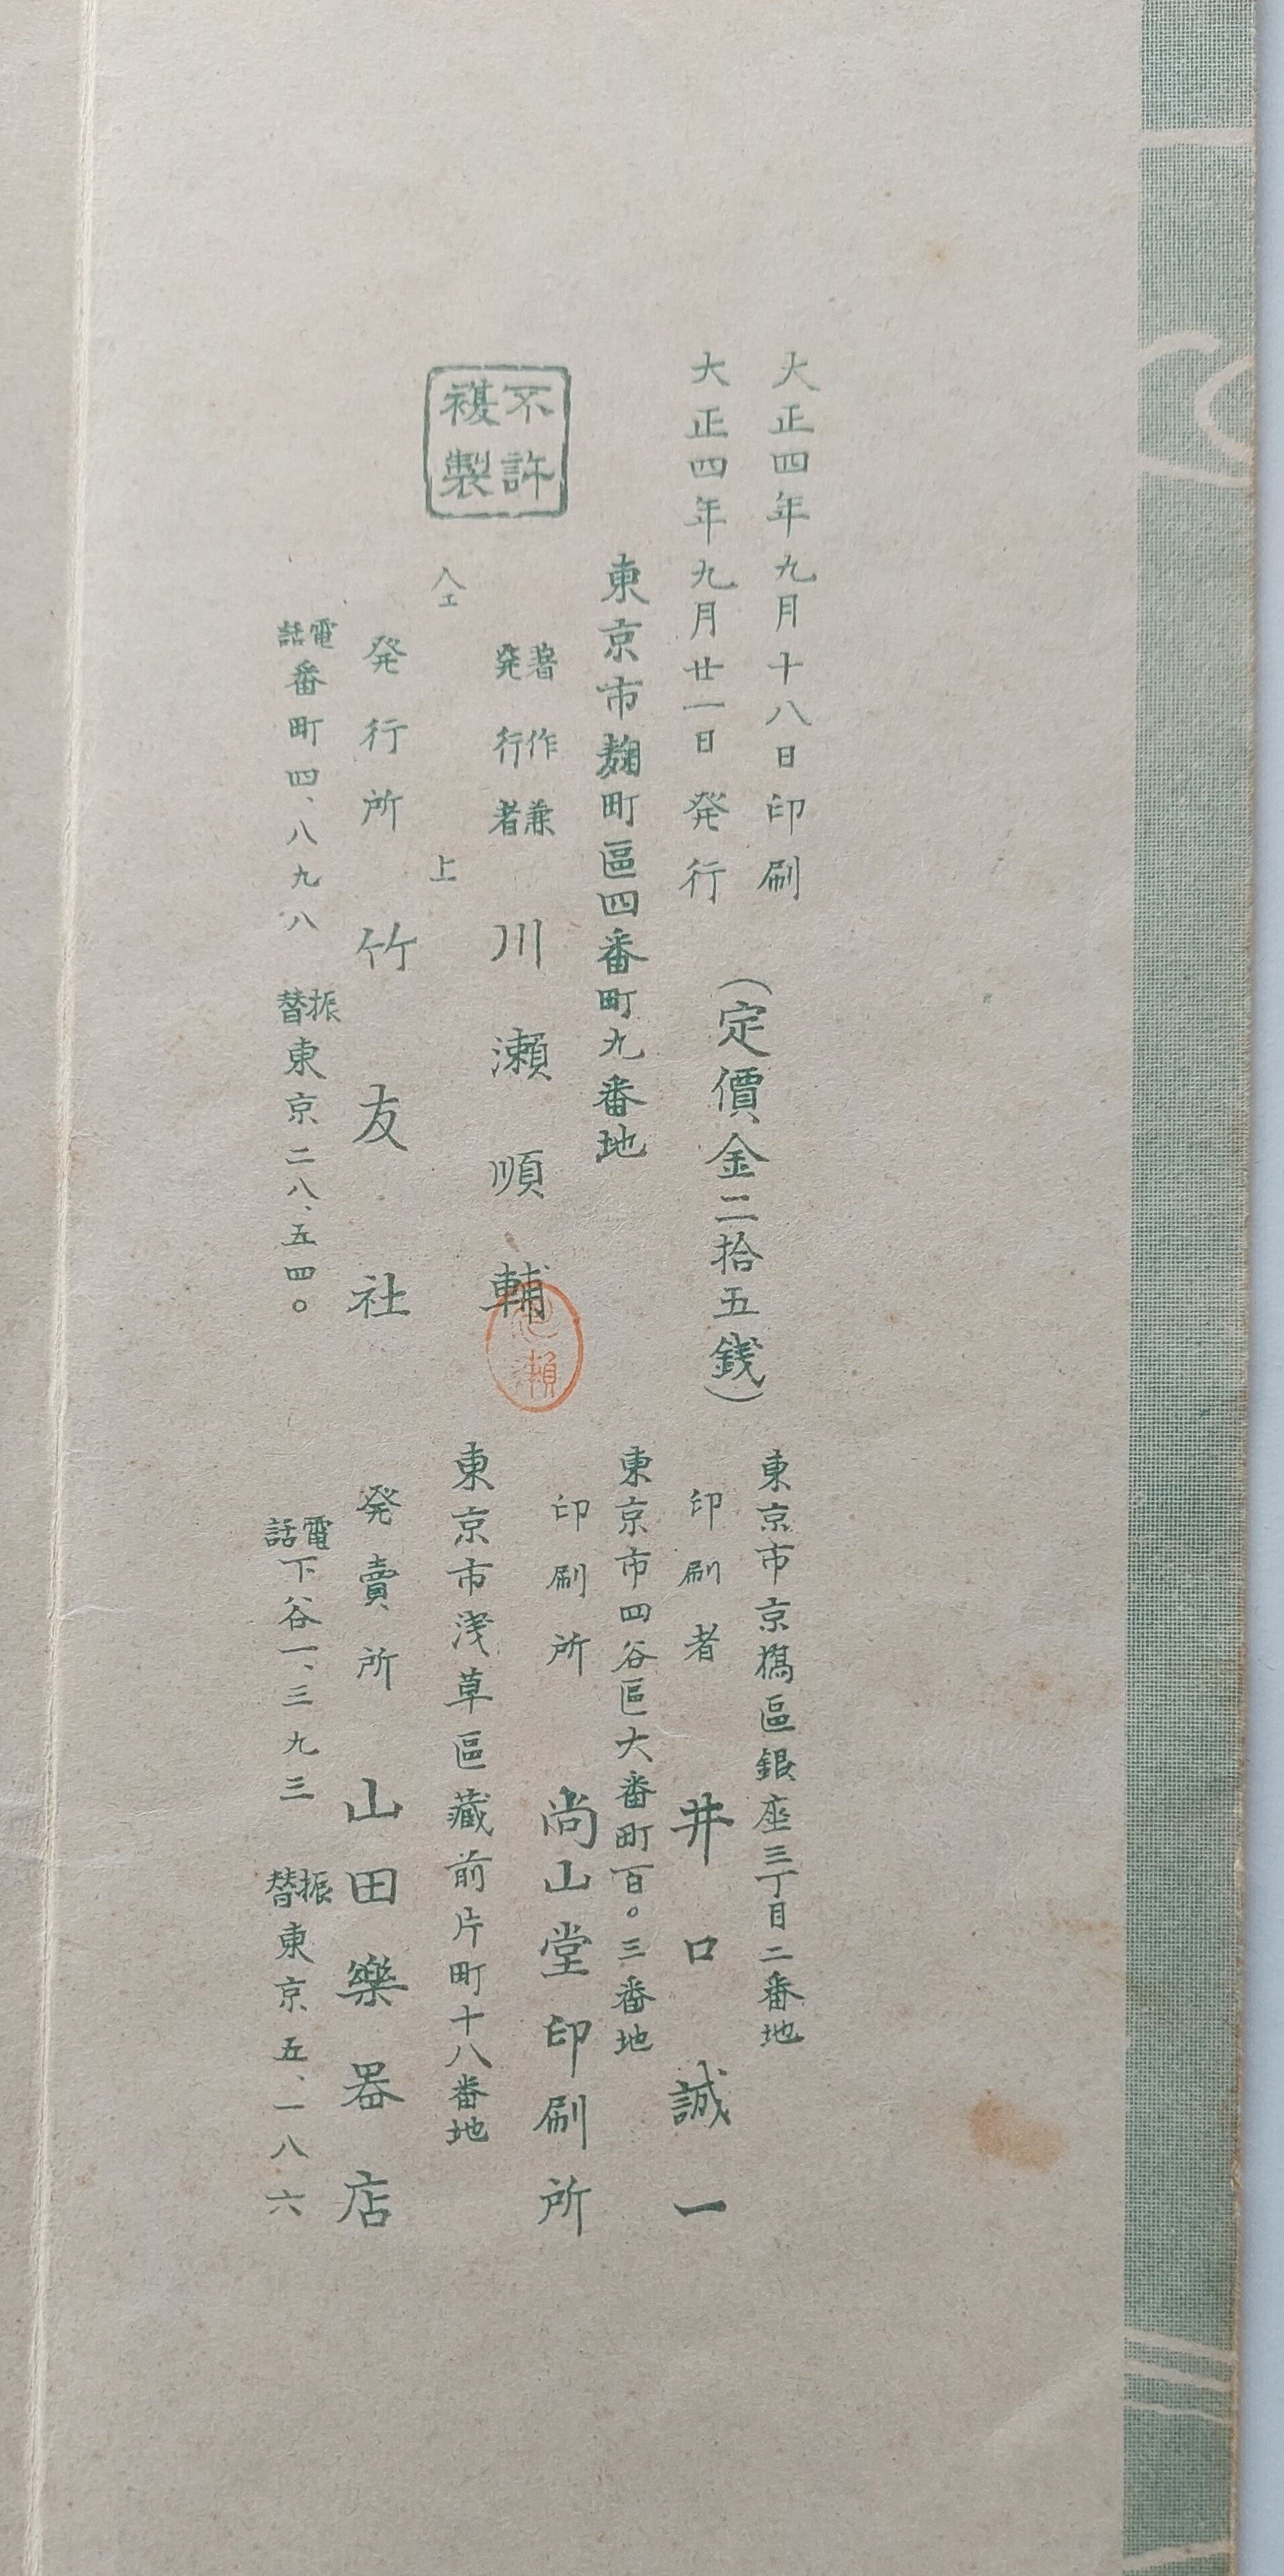 大正四年九月十八日印刷
大正四年九月廿一日発行
(定價金二拾五錢)
東京市麹町區四番町九番地
不許
複製
著作兼
発行者
川瀬順輔
川瀬
八工
上
発行所 竹友社
電話 番町四、八九八 振替 東京二八、五四〇
東京市京橋區銀座三丁目二番地
印刷者 井口誠一
東京市四谷區大番町百〇三番地
印刷所 尚山堂印刷所
東京市淺草區藏前片町十八番地
発賣所 山田樂器店
電話 下谷一、三九三 振替 東京五、一八六